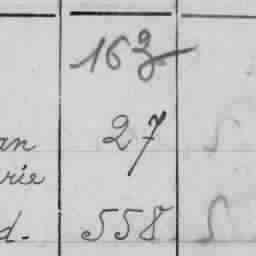 163
an 27
rie
d. 558